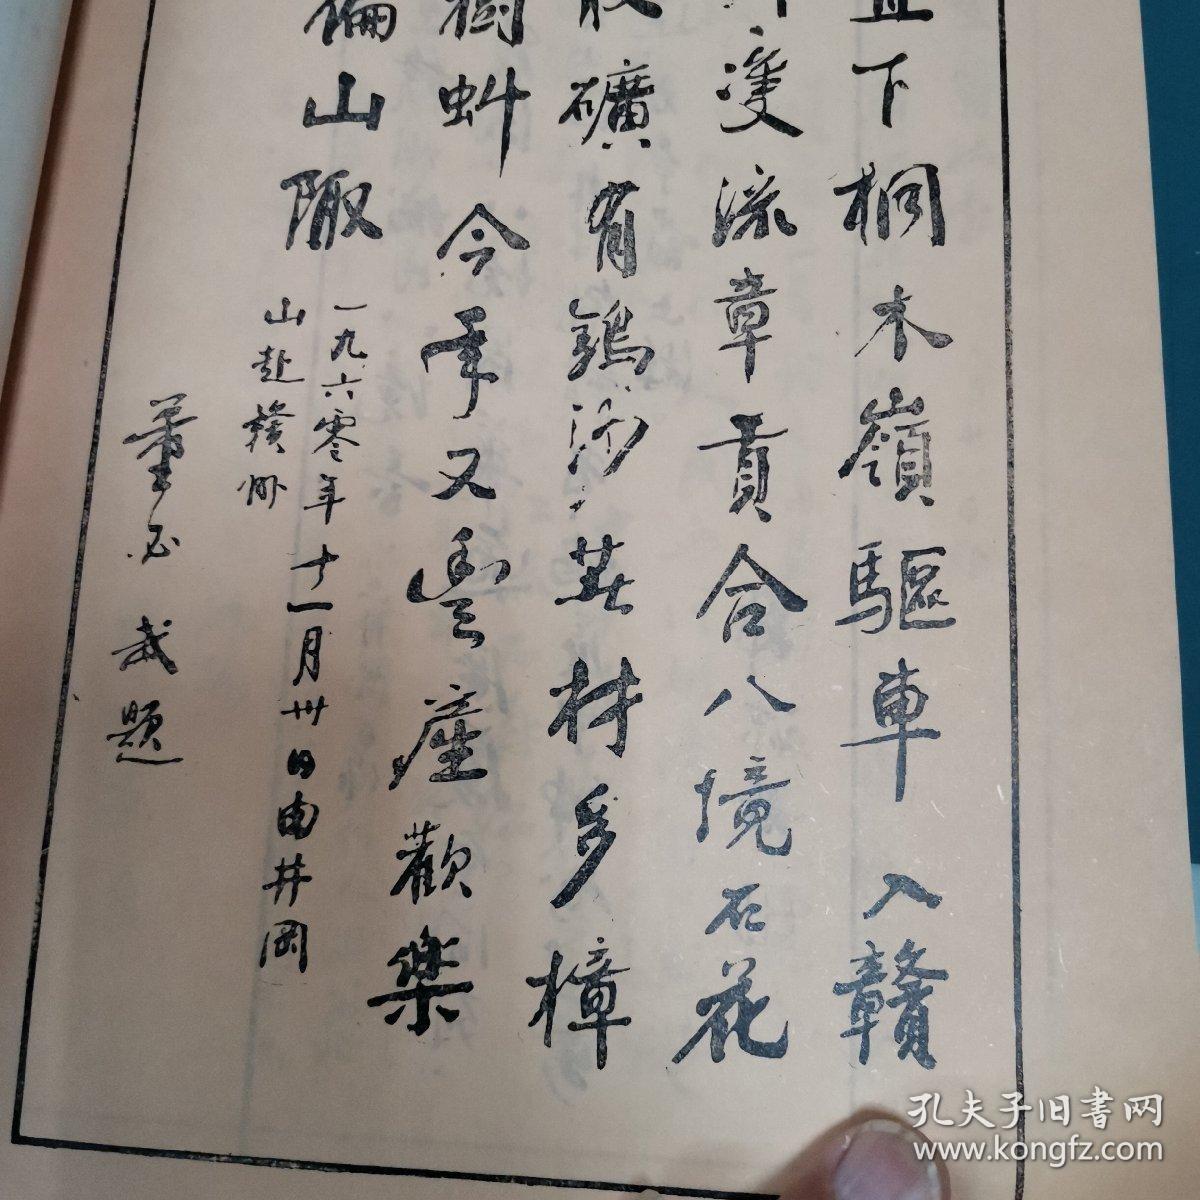 直下桐木嶺驅車入贛
州雙流章貢合八境石花
礦有鎢沙英材多樟
樹蚪今年又豐產歡樂
徧山陬
一九六零年十一月卅日由井岡
山赴贛州
董必武題
孔夫子旧书网
www.kongfz.com